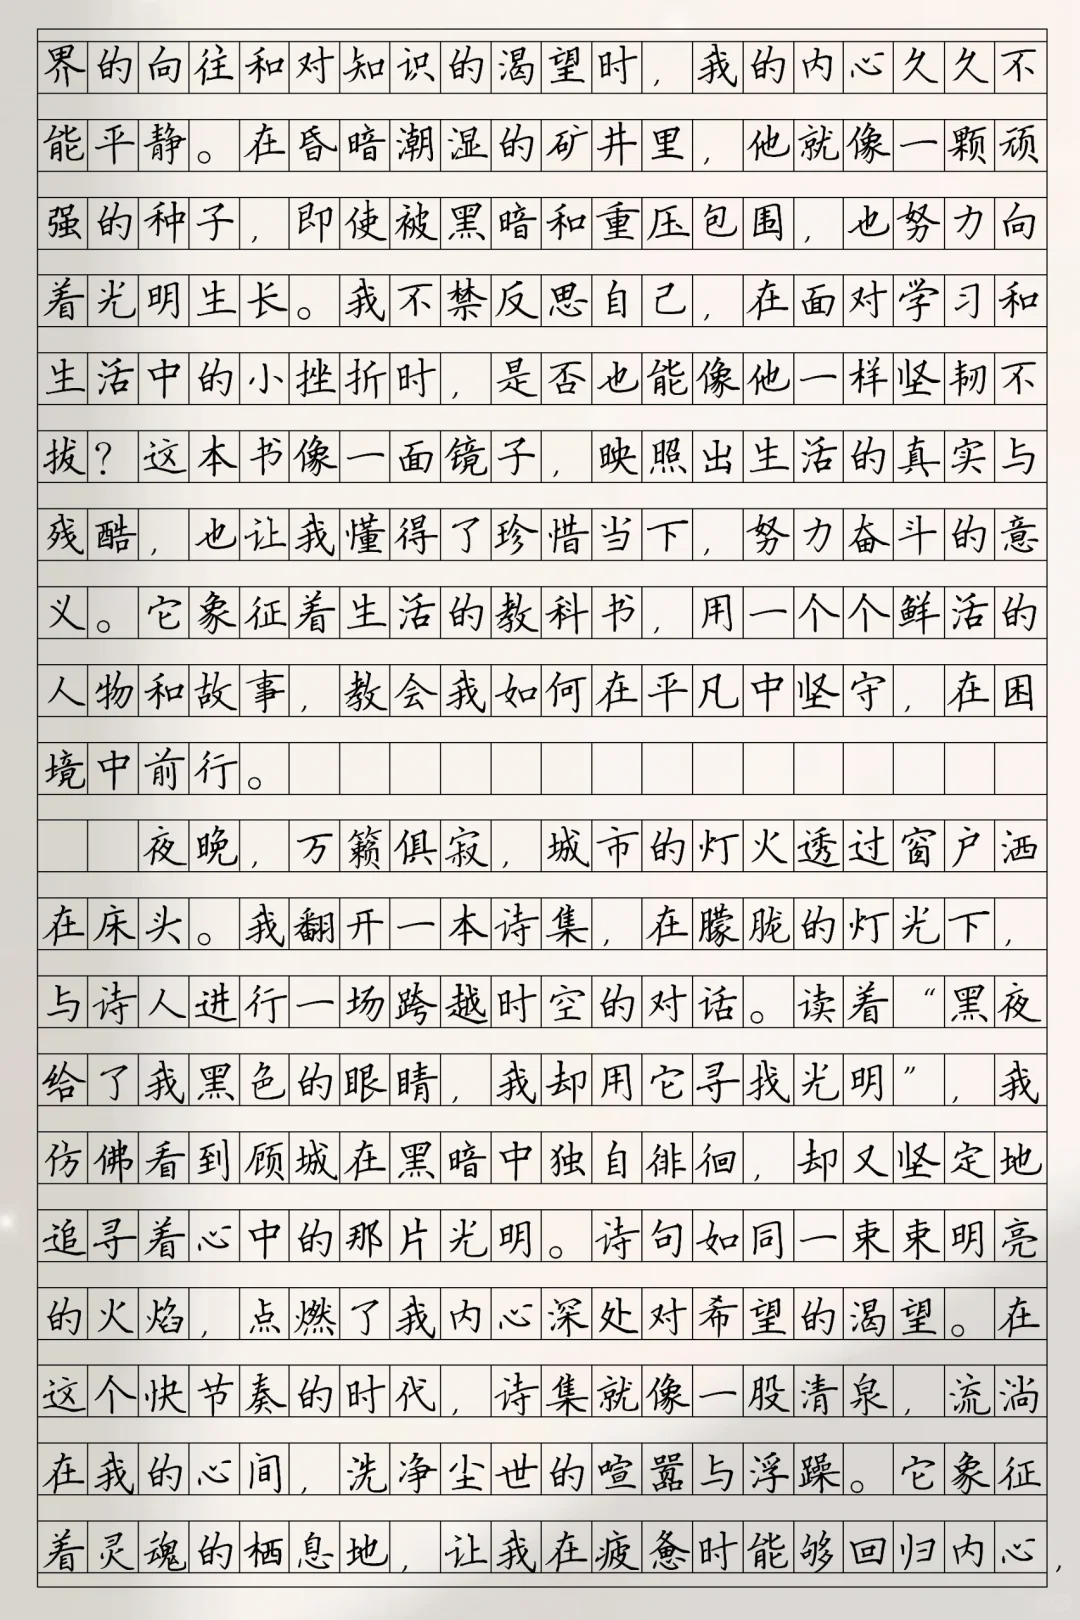 界的向往和对知识的渴望时，我的内心久久不
能平静。在昏暗潮湿的矿井里，他就像一颗顽
强的种子，即使被黑暗和重压包围，也努力向
着光明生长。我不禁反思自己，在面对学习和
生活中的小挫折时，是否也能像他一样坚韧不
拔？这本书像一面镜子，映照出生活的真实与
残酷，也让我懂得了珍惜当下，努力奋斗的意
义。它象征着生活的教科书，用一个个鲜活的
人物和故事，教会我如何在平凡中坚守，在困
境中前行。
夜晚，万籁俱寂，城市的灯火透过窗户洒
在床头。我翻开一本诗集，在朦胧的灯光下，
与诗人进行一场跨越时空的对话。读着“黑夜
给了我黑色的眼睛，我却用它寻找光明”，我
仿佛看到顾城在黑暗中独自徘徊，却又坚定地
追寻着心中的那片光明。诗句如同一束束明亮
的火焰，点燃了我内心深处对希望的渴望。在
这个快节奏的时代，诗集就像一股清泉，流淌
在我的心间，洗净尘世的喧嚣与浮躁。它象征
着灵魂的栖息地，让我在疲惫时能够回归内心，